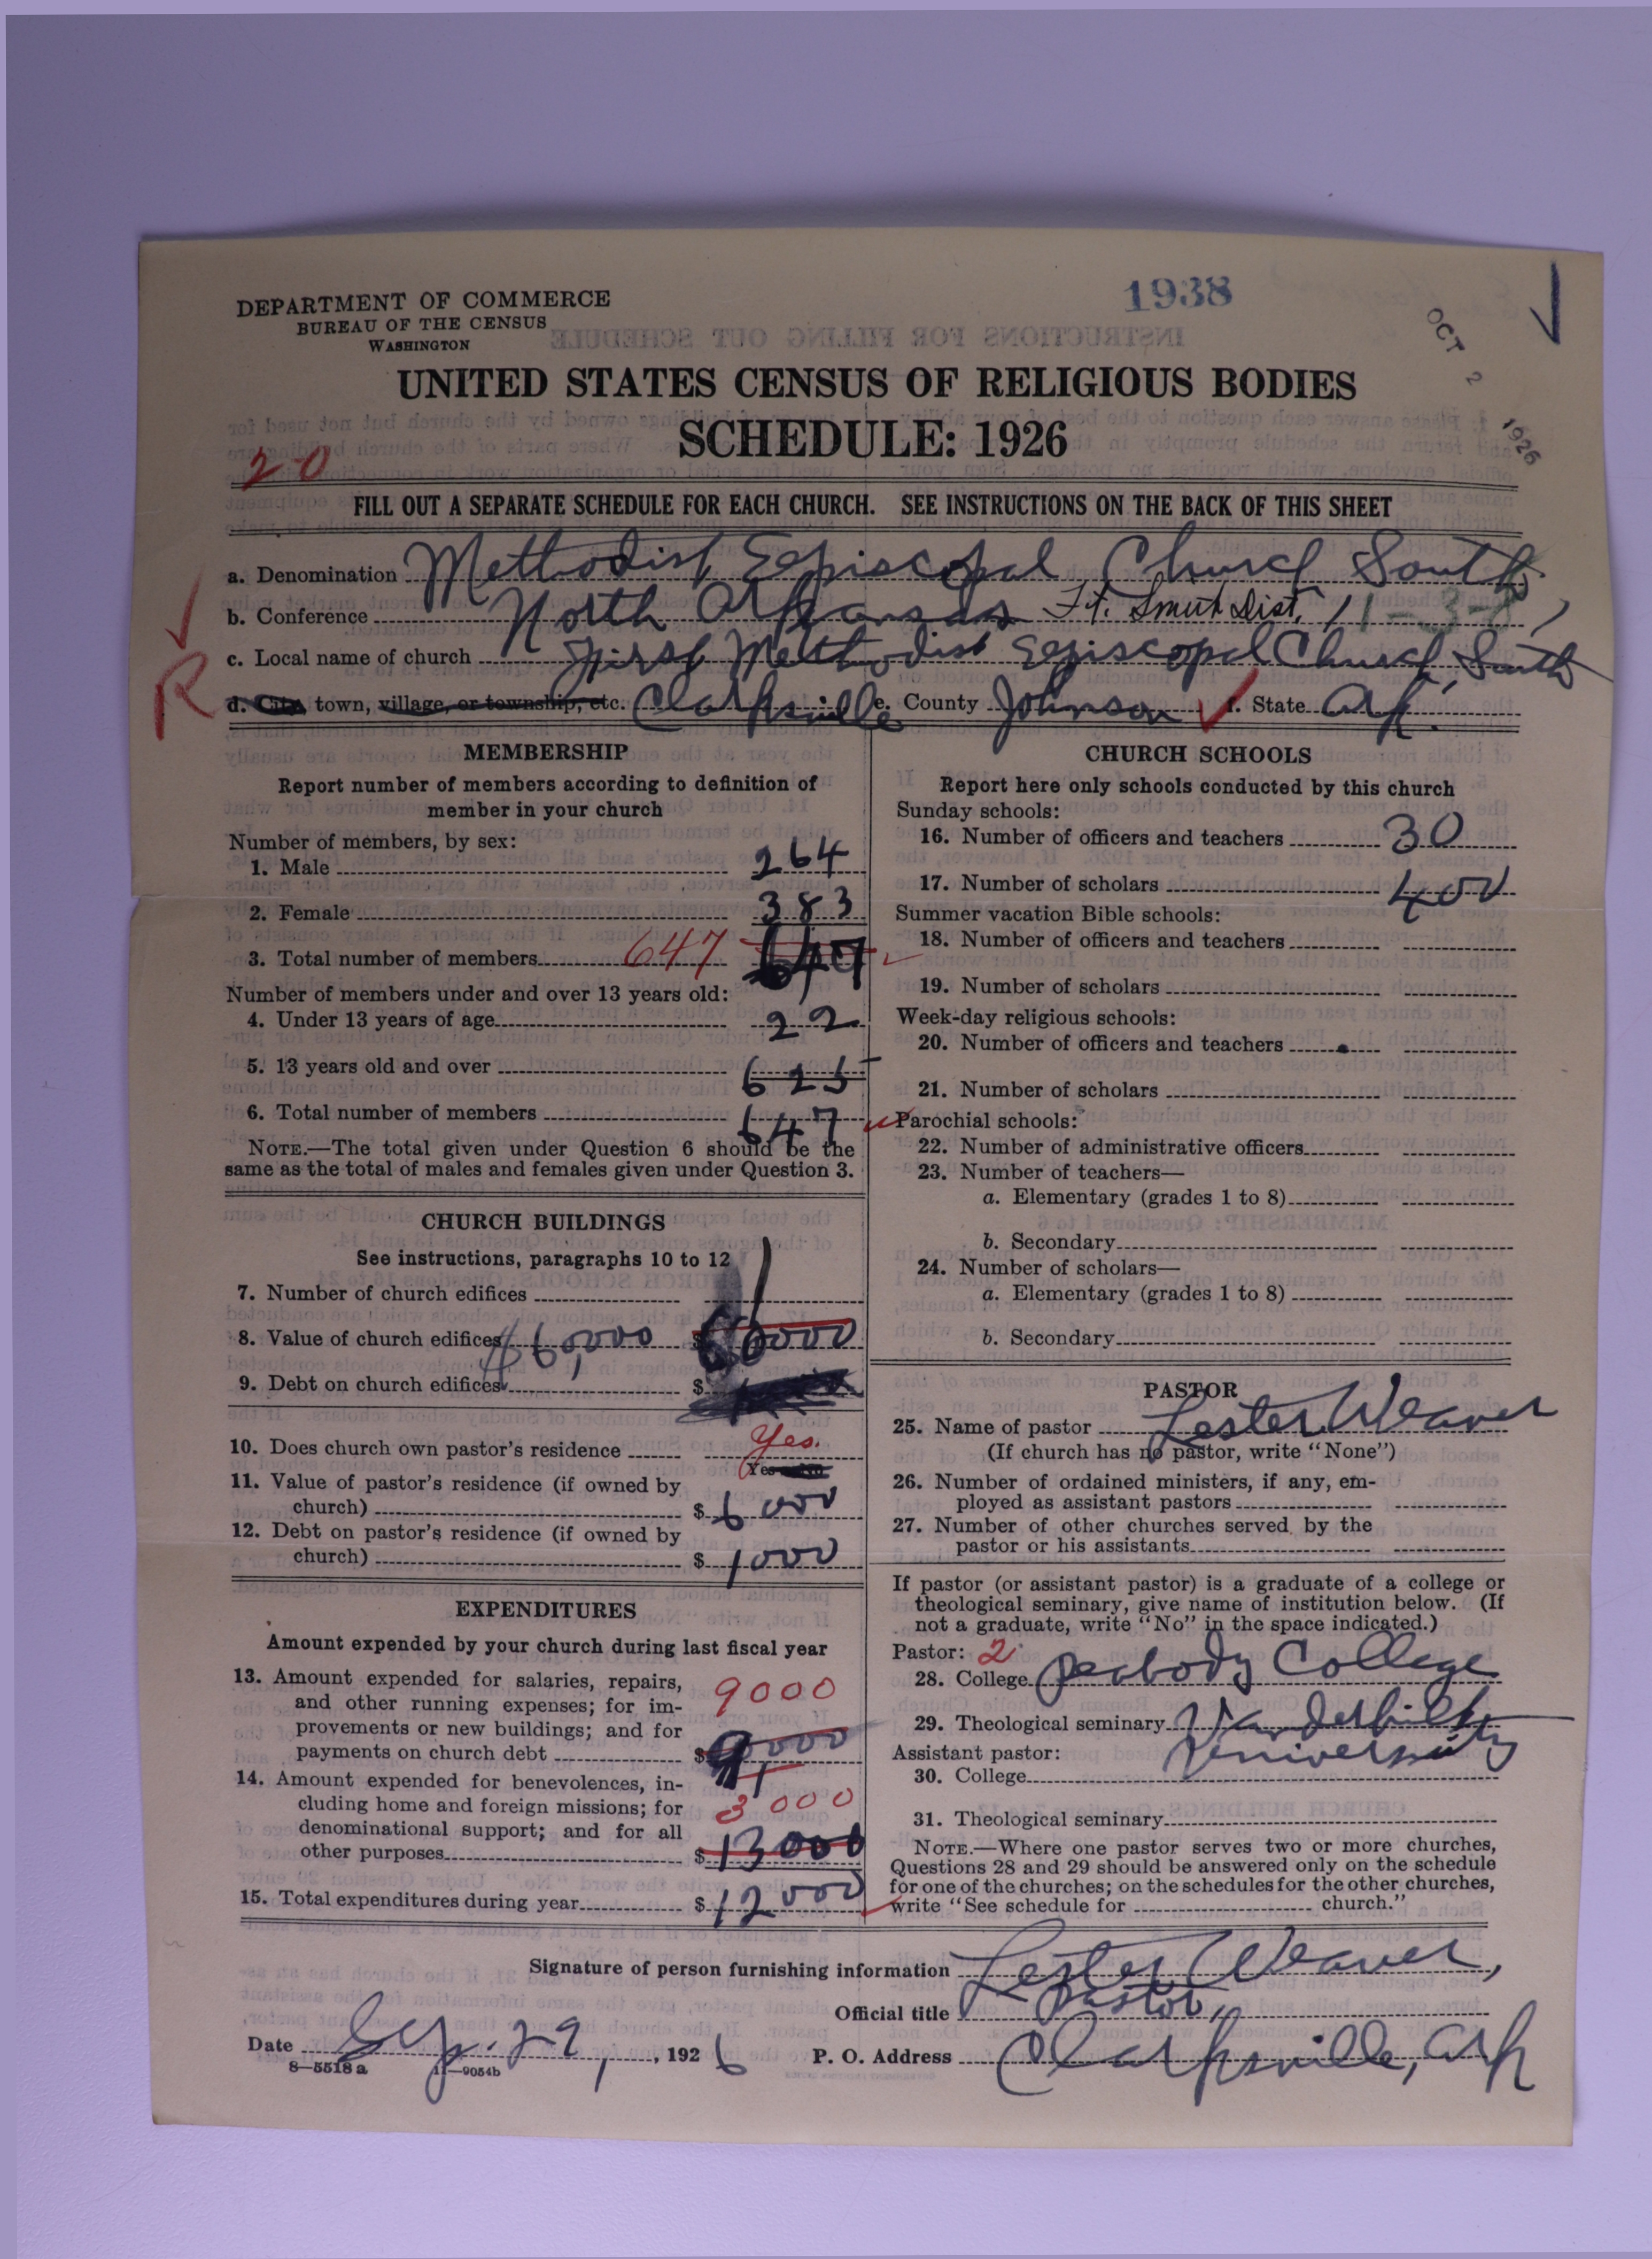 DEPARTMENT OF COMMERCE
BUREAU OF THE CENSUS
WASHINGTON
1938
OCT 2 1926
UNITED STATES CENSUS OF RELIGIOUS BODIES
SCHEDULE: 1926
20
FILL OUT A SEPARATE SCHEDULE FOR EACH CHURCH. SEE INSTRUCTIONS ON THE BACK OF THIS SHEET
a. Denomination Methodist Episcopal Church South
b. Conference North Arkansas Ft. Smith Dist.
c. Local name of church First Methodist Episcopal Church, South
R
d. City, town, village, or township, etc. Clarksville e. County Johnson f. State Ark.
MEMBERSHIP
Report number of members according to definition of
member in your church
Number of members, by sex:
1. Male 264
2. Female 383
3. Total number of members 647 647
Number of members under and over 13 years old:
4. Under 13 years of age 22
5. 13 years old and over 625
6. Total number of members 647
NOTE.—The total given under Question 6 should be the
same as the total of males and females given under Question 3.
CHURCH BUILDINGS
See instructions, paragraphs 10 to 12
7. Number of church edifices 1
8. Value of church edifices $60,000 $
9. Debt on church edifices $
10. Does church own pastor's residence Yes.
Yes No
11. Value of pastor's residence (if owned by
church) $ 6000
12. Debt on pastor's residence (if owned by
church) $ 1000
EXPENDITURES
Amount expended by your church during last fiscal year
13. Amount expended for salaries, repairs,
and other running expenses; for im-
provements or new buildings; and for
payments on church debt 9000 $ 9000
14. Amount expended for benevolences, in-
cluding home and foreign missions; for
denominational support; and for all
other purposes 3000 $ 13000
15. Total expenditures during year $ 12000
CHURCH SCHOOLS
Report here only schools conducted by this church
Sunday schools:
16. Number of officers and teachers 30
17. Number of scholars 400
Summer vacation Bible schools:
18. Number of officers and teachers
19. Number of scholars
Week-day religious schools:
20. Number of officers and teachers
21. Number of scholars
Parochial schools:
22. Number of administrative officers
23. Number of teachers—
a. Elementary (grades 1 to 8)
b. Secondary
24. Number of scholars—
a. Elementary (grades 1 to 8)
b. Secondary
PASTOR
25. Name of pastor Lester Weaver
(If church has no pastor, write "None")
26. Number of ordained ministers, if any, em-
ployed as assistant pastors
27. Number of other churches served by the
pastor or his assistants
If pastor (or assistant pastor) is a graduate of a college or
theological seminary, give name of institution below. (If
not a graduate, write "No" in the space indicated.)
Pastor: 2
28. College Peabody College
29. Theological seminary Vanderbilt
University
Assistant pastor:
30. College
31. Theological seminary
NOTE.—Where one pastor serves two or more churches,
Questions 28 and 29 should be answered only on the schedule
for one of the churches; on the schedules for the other churches,
write "See schedule for church."
Signature of person furnishing information Lester Weaver,
Official title Pastor,
Date Sep. 29, 1926 P. O. Address Clarksville, Ark
8—5518a 11—9054b